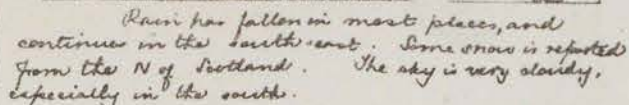 Rain has fallen in most places, and
continues in the south east. Some snow is reported
from the N of Scotland. The sky is very cloudy,
especially in the south.